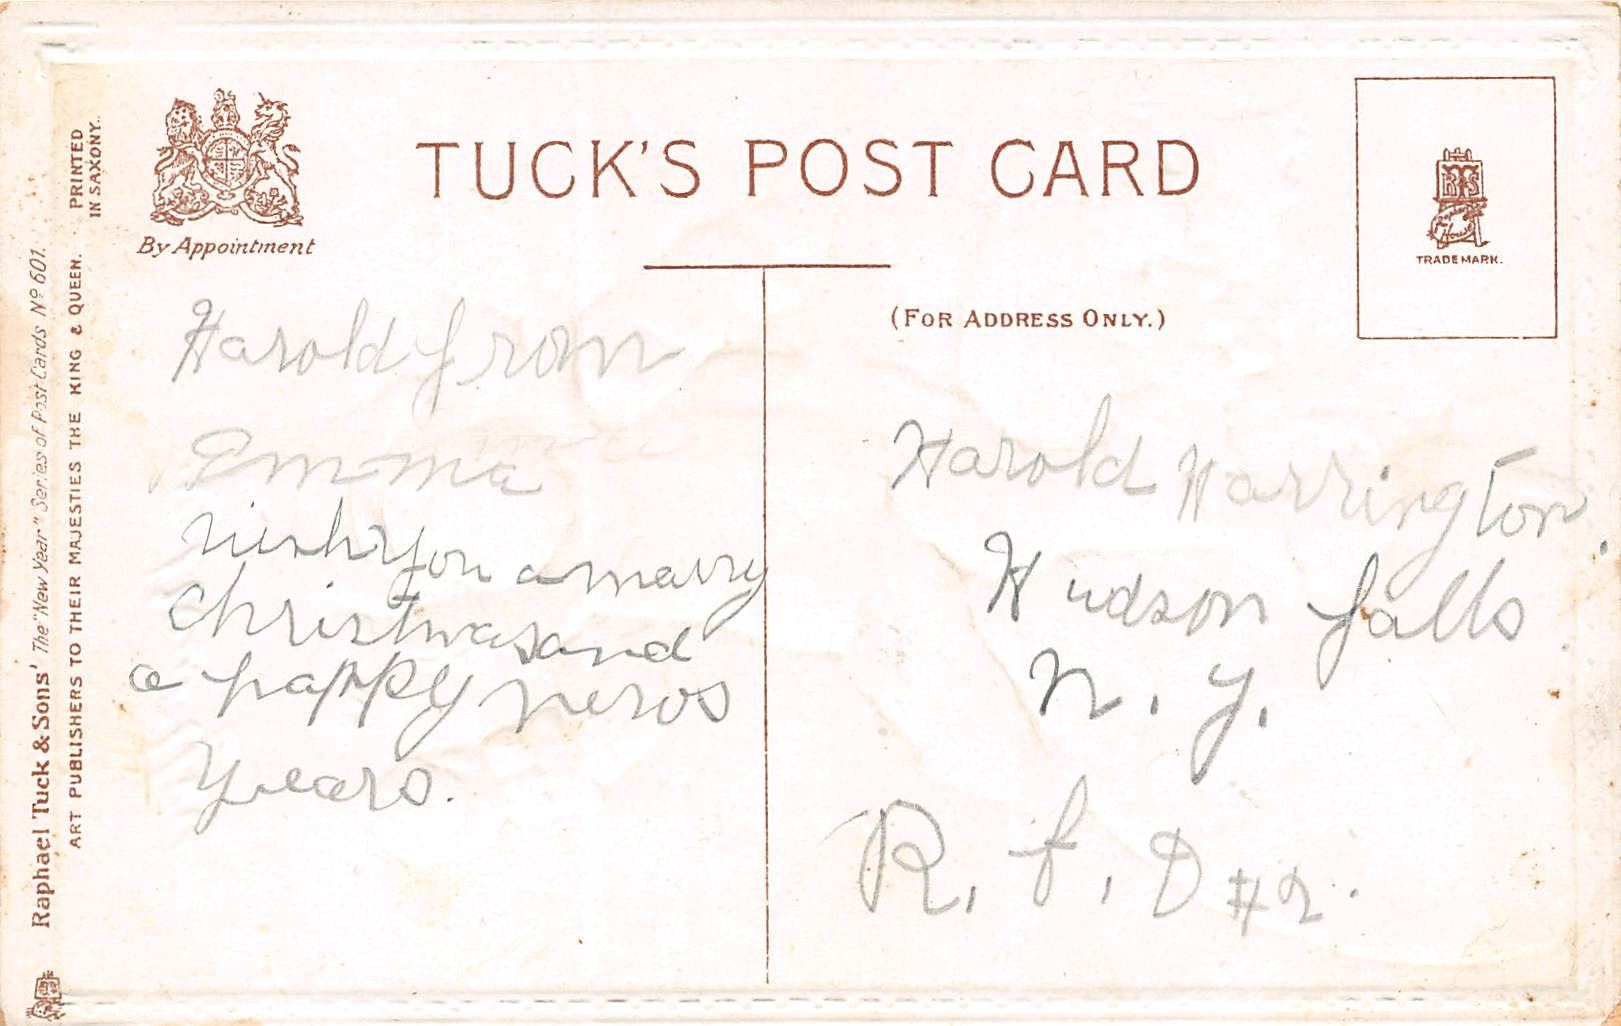 TUCK'S POST CARD
By Appointment
PRINTED
IN SAXONY.
Raphael Tuck & Sons' The "New Year" Series of Post Cards Nº 601.
ART PUBLISHERS TO THEIR MAJESTIES THE KING & QUEEN.
Raphael
House
TRADE MARK.
(FOR ADDRESS ONLY.)
Harold from
Emma
you a marry
christmas and
a happy
years.
Harold Harrington.
Hudson falls
N. Y.
R. f. D #2.